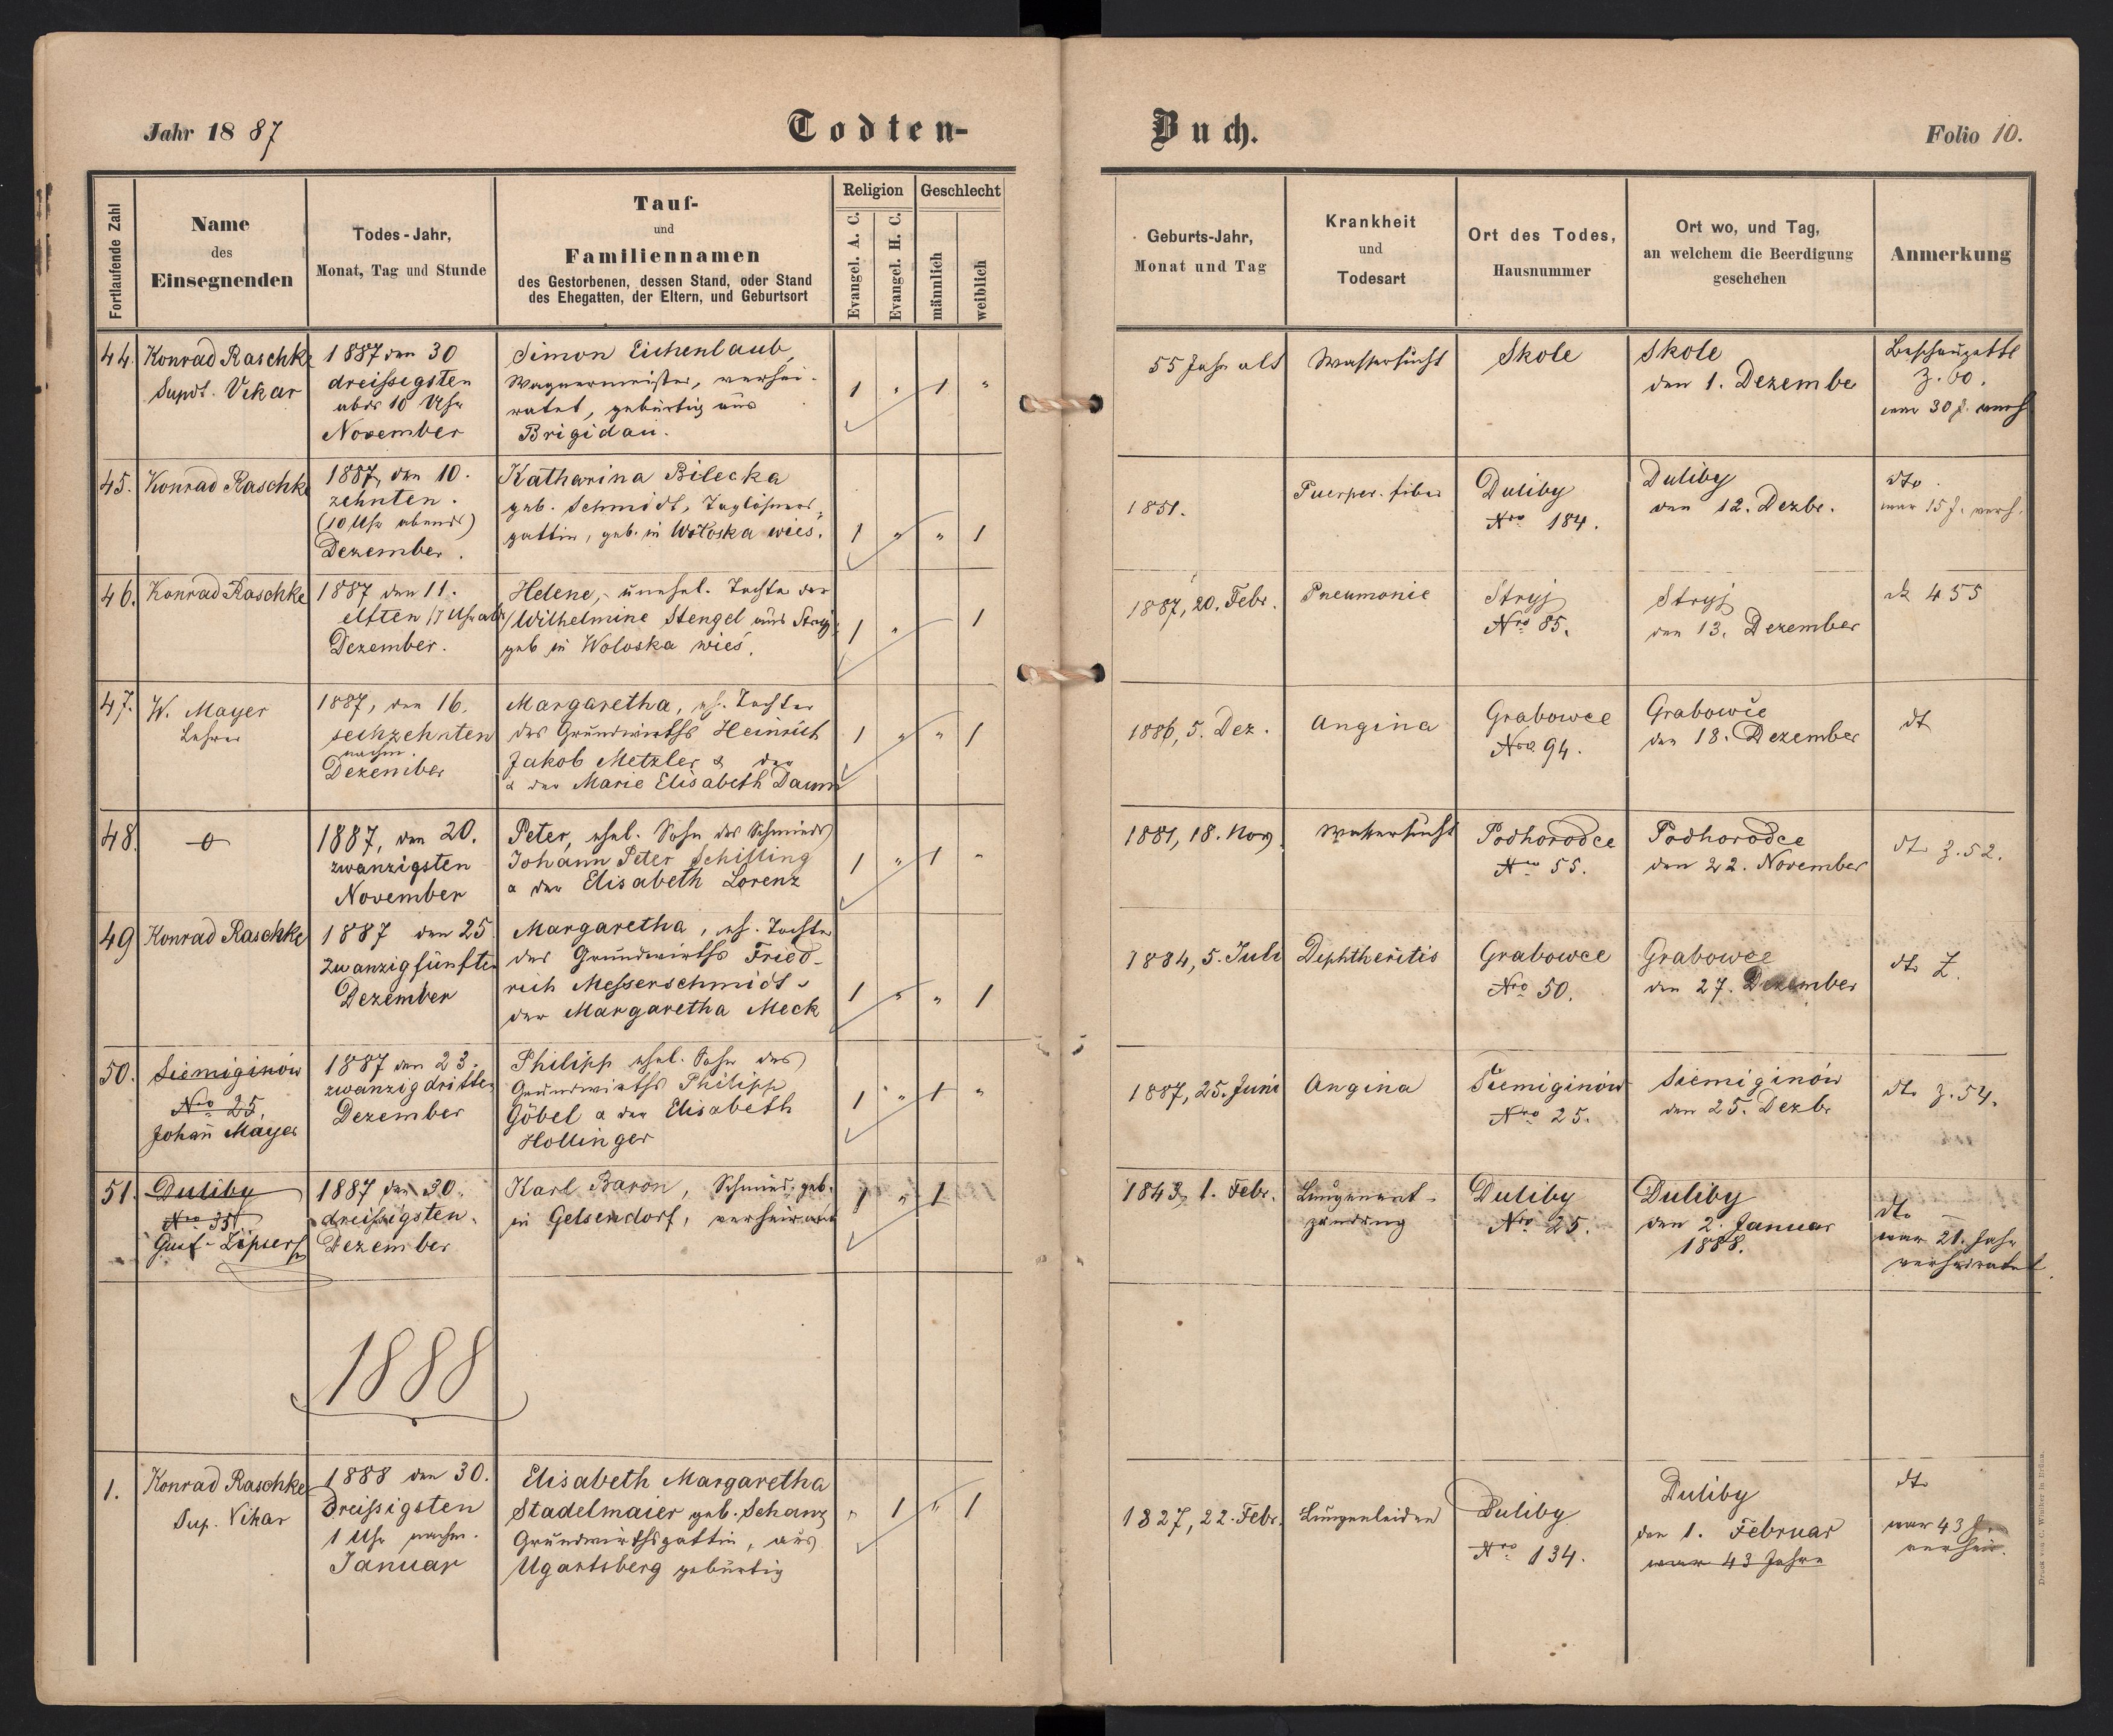 Jahr 1887
Todten-
Buch.
Folio 10.
Fortlaufende Zahl
Name
des
Einsegnenden
Todes-Jahr,
Monat, Tag und Stunde
Tauf-
und
Familiennamen
des Gestorbenen, dessen Stand, oder Stand
des Ehegatten, der Eltern, und Geburtsort
Religion
Evangel. A. C.
Evangel. H. C.
Geschlecht
männlich
weiblich
Geburts-Jahr,
Monat und Tag
Krankheit
und
Todesart
Ort des Todes,
Hausnummer
Ort wo, und Tag,
an welchem die Beerdigung
geschehen
Anmerkung
44.
Konrad Raschke
Supdt. Vikar
1887 den 30
dreissigsten
abds 10 Uhr
November
Simon Eichenlaub,
Wagnermeister, verhei-
ratet, gebürtig aus
Brigidau.
1 " 1 "
55 Jahr alt
Wassersucht
Skole
Skole
den 1. Dezember
Beschauzettel
Z. 60.
war 30 J. verh
45.
Konrad Raschke
1887, den 10.
zehnten.
(10 Uhr abends)
Dezember.
Katharina Bilecka
geb. Schmidt, Taglöhners-
gattin, geb. in Woloska wies.
1 " " 1
1851.
Puerper. fiber
Duliby
Nro 184.
Duliby
den 12. Dezbr.
dto.
war 15 J. verh.
46.
Konrad Raschke
1887 den 11.
elften (7 Uhr abds)
Dezember.
Helene, unehel. Tochter der
Wilhelmine Stengel aus Stryj
geb in Woloska wieś.
1 " 1
1887, 20. Febr.
Pneumonie
Stryj
Nro 85.
Stryj
den 13. Dezember
455
47.
W. Mayer
Lehrer
1887, den 16.
sechzehnten
nachm.
Dezember
Margaretha, eh. Tochter
des Grundwirths Heinrich
Jakob Metzler & der
& der Marie Elisabeth Daum
1 " " 1
1886, 5. Dez.
Angina
Grabowce
Nro. 94.
Grabowce
den 18. Dezember
dt
48.
1887, den 20.
zwanzigsten
November
Peter, ehel. Sohn des Schmieds
Johann Peter Schilling
& der Elisabeth Lorenz
1 " 1 "
1881, 18. Nov
Wassersucht
Podhorodce
Nro 55.
Podhorodce
den 22. November
dt. Z. 52.
49
Konrad Raschke
1887 den 25.
zwanzigfünften
Dezember
Margaretha, eh. Tochter
des Grundwirths Fried-
rich Messerschmidt &
der Margaretha Meck
1 " " 1
1884, 5. Juli
Diphtheritis
Grabowce
Nro 50.
Grabowce
den 27. Dezember
dto Z.
50.
Siemiginow
Nro 25,
Johañ Mayer
1887 den 23.
zwanzigdritten
Dezember
Philipp ehel. Sohn des
Grundwirths Philipp
Göbel & der Elisabeth
Hollinger
1 " 1 "
1887, 25. Juni
Angina
Siemiginów
Nro 25.
Siemiginów
den 25. Dezbr
dto Z. 54.
51.
Duliby
Nro 35
Gust. Zipser
1887 den 30.
dreissigsten.
Dezember
Karl Baron, Schmied, geb.
in Gelsendorf, verheiratet
1 " 1
1843, 1. Febr.
Lungenent-
zündung
Duliby
Nro 25.
Duliby
den 2. Januar
1888.
dto
war 21. Jahr
verheiratet.
1888
1.
Konrad Raschke
Sup. Vikar
1888 den 30.
Dreissigsten
1 Uhr nachm.
Januar
Elisabeth Margaretha
Stadelmaier geb. Schanz
Grundwirthsgattin, aus
Ugartsberg gebürtig
" 1 " 1
1827, 22. Febr.
Lungenleiden
Duliby
Nro 134.
Duliby
den 1. Februar
war 43 Jahre
dto
war 43 J.
verheir.
Druck von C. Winiker in Brünn.